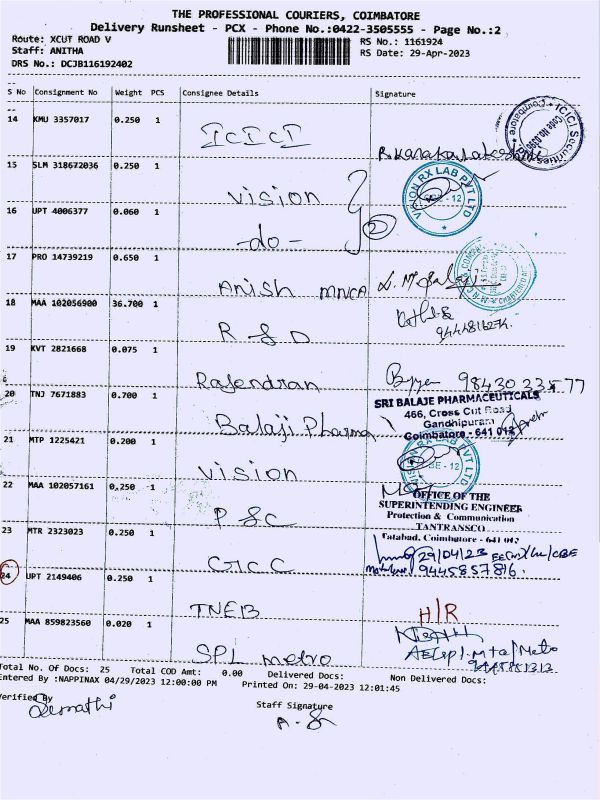 THE PROFESSIONAL COURIERS, COIMBATORE
Delivery Runsheet - PCX - Phone No.:0422-3505555 - Page No.:2
Route: XCUT ROAD V
RS No.: 1161924
Staff: ANITHA
RS Date: 29-Apr-2023
DRS No.: DCJB116192402
S No Consignment No Weight PCS Consignee Details Signature
14 KMU 3357017 0.250 1
ICICI
ICICI Securities
Coimbatore
15 SLM 318672036 0.250 1
Vision
VISION RX LAB PVT LTD
CBE - 12
16 UPT 4006377 0.060 1
-do-
2
17 PRO 14739219 0.650 1
Anish MNCA
18 MAA 102056900 36.700 1
R & D
9444816274
19 KVT 2821668 0.075 1
Rajendran
98430 33577
20 TNJ 7671883 0.700 1
Balaji Pharma
SRI BALAJE PHARMACEUTICALS
466, Cross Cut Road
Gandhipuram
Coimbatore - 641 012
21 MTP 1225421 0.200 1
Vision
VISION RX LAB PVT LTD
CBE - 12
22 MAA 102057161 0.250 1
P & C
OFFICE OF THE
SUPERINTENDING ENGINEER
Protection & Communication
TANTRANSCO
Tatabad, Coimbatore - 641 012
23 MTR 2323023 0.250 1
GCC
29/04/23
9445857816
24 UPT 2149406 0.250 1
TNEB
H/R
25 MAA 859823560 0.020 1
SPL metro
Total No. Of Docs: 25 Total COD Amt: 0.00 Delivered Docs: Non Delivered Docs:
Entered By :NAPPINAX 04/29/2023 12:00:00 PM Printed On: 29-04-2023 12:01:45
Verified By
Staff Signature